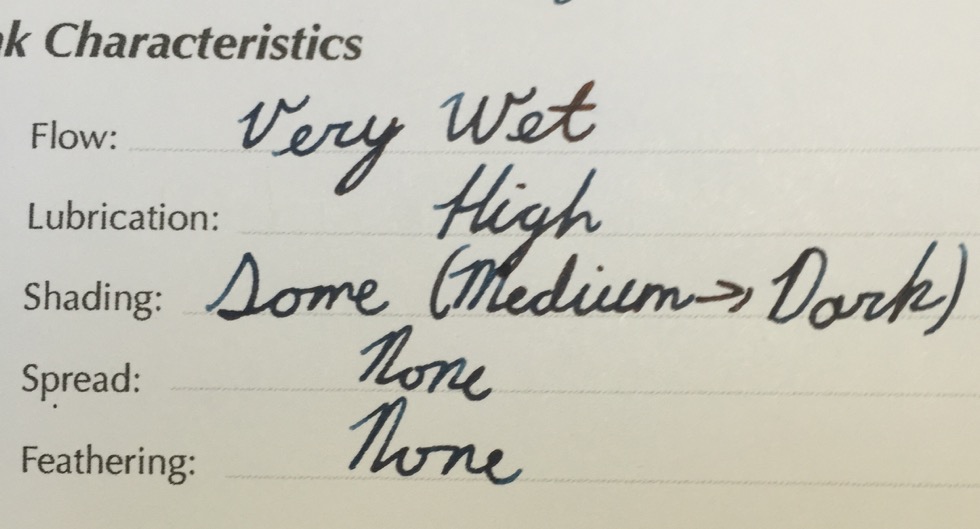 nk Characteristics
Flow: Very Wet
Lubrication: High
Shading: Some (Medium → Dark)
Spread: None
Feathering: None